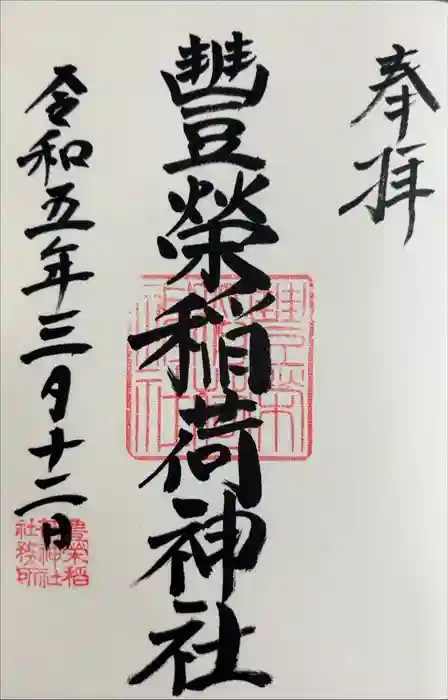 奉拝
豐榮稲荷神社
令和五年三月十二日
豊栄稲
荷神社
社務所